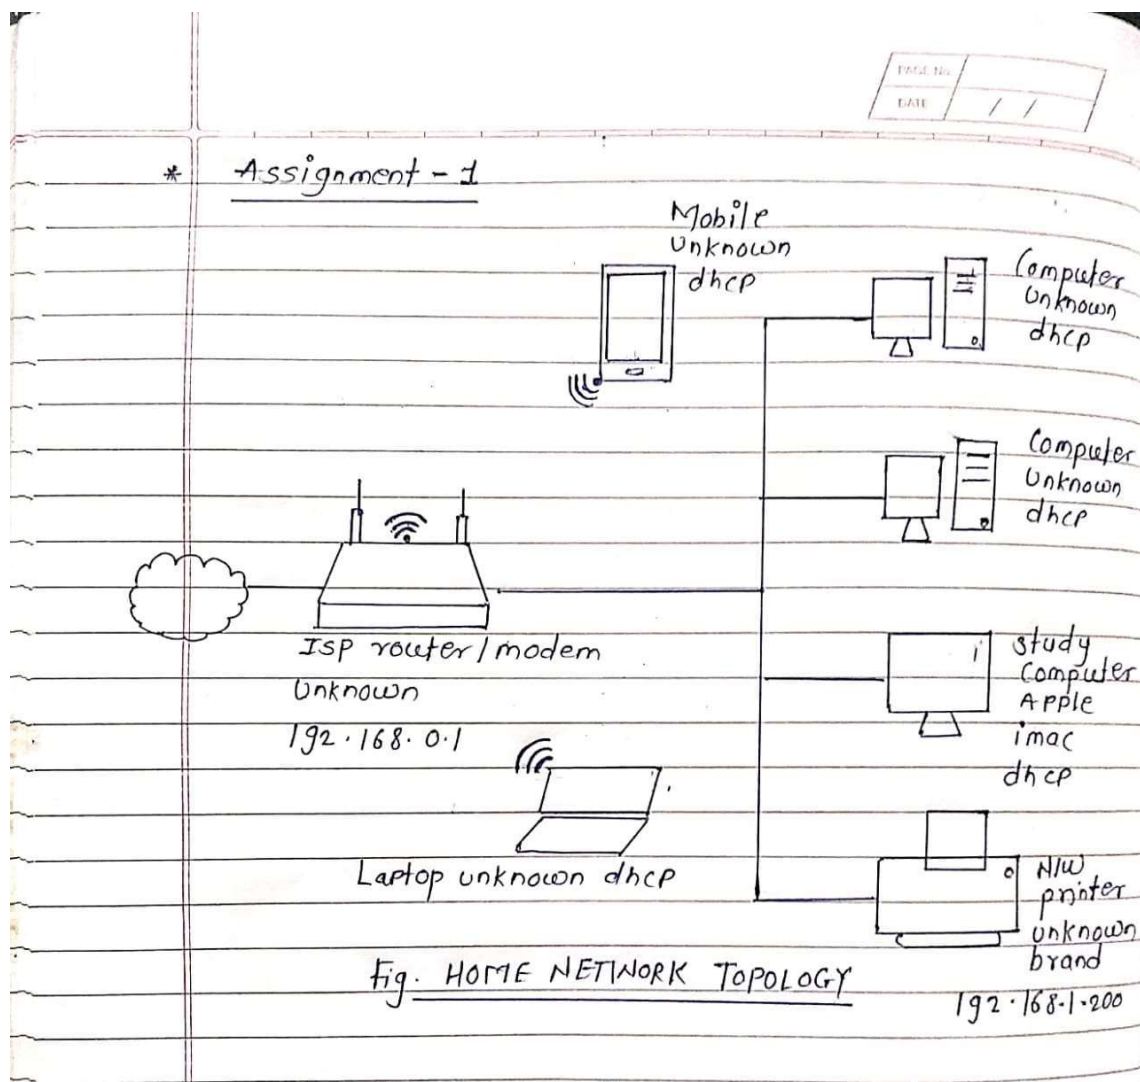 PAGE No.
DATE / /
* Assignment - 1
Mobile
Unknown
dhcp
Computer
Unknown
dhcp
Computer
Unknown
dhcp
ISP router/modem
Unknown
192.168.0.1
Study
Computer
Apple
imac
dhcp
Laptop unknown dhcp
N/W
printer
unknown
brand
192.168.1.200
Fig. HOME NETWORK TOPOLOGY